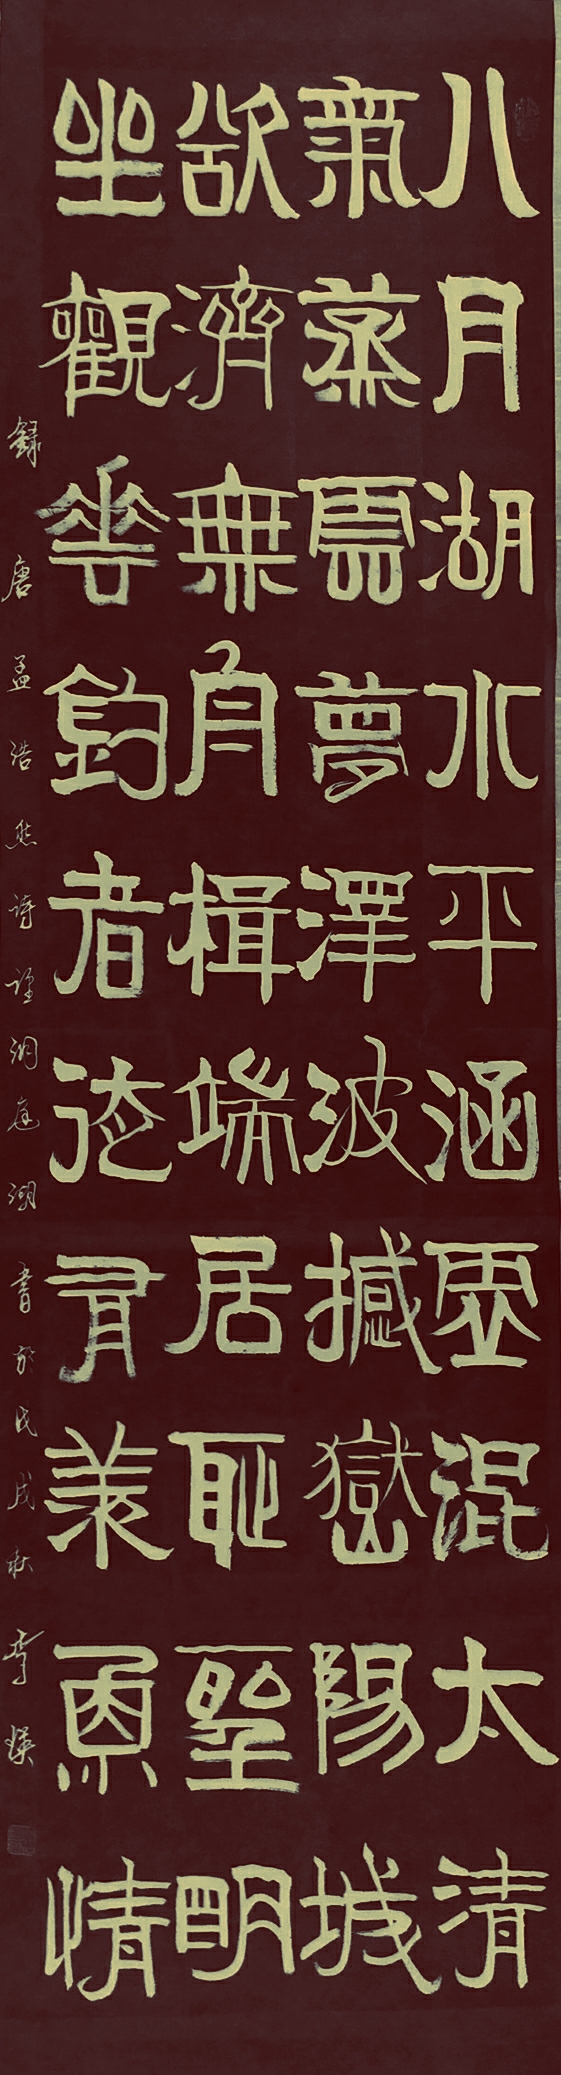 八月湖水平涵虛混太清
氣蒸雲夢澤波撼嶽陽城
欲濟無舟楫端居恥聖明
坐觀垂釣者徒有羨魚情
錄唐孟浩然詩望洞庭湖書於戊戌秋李